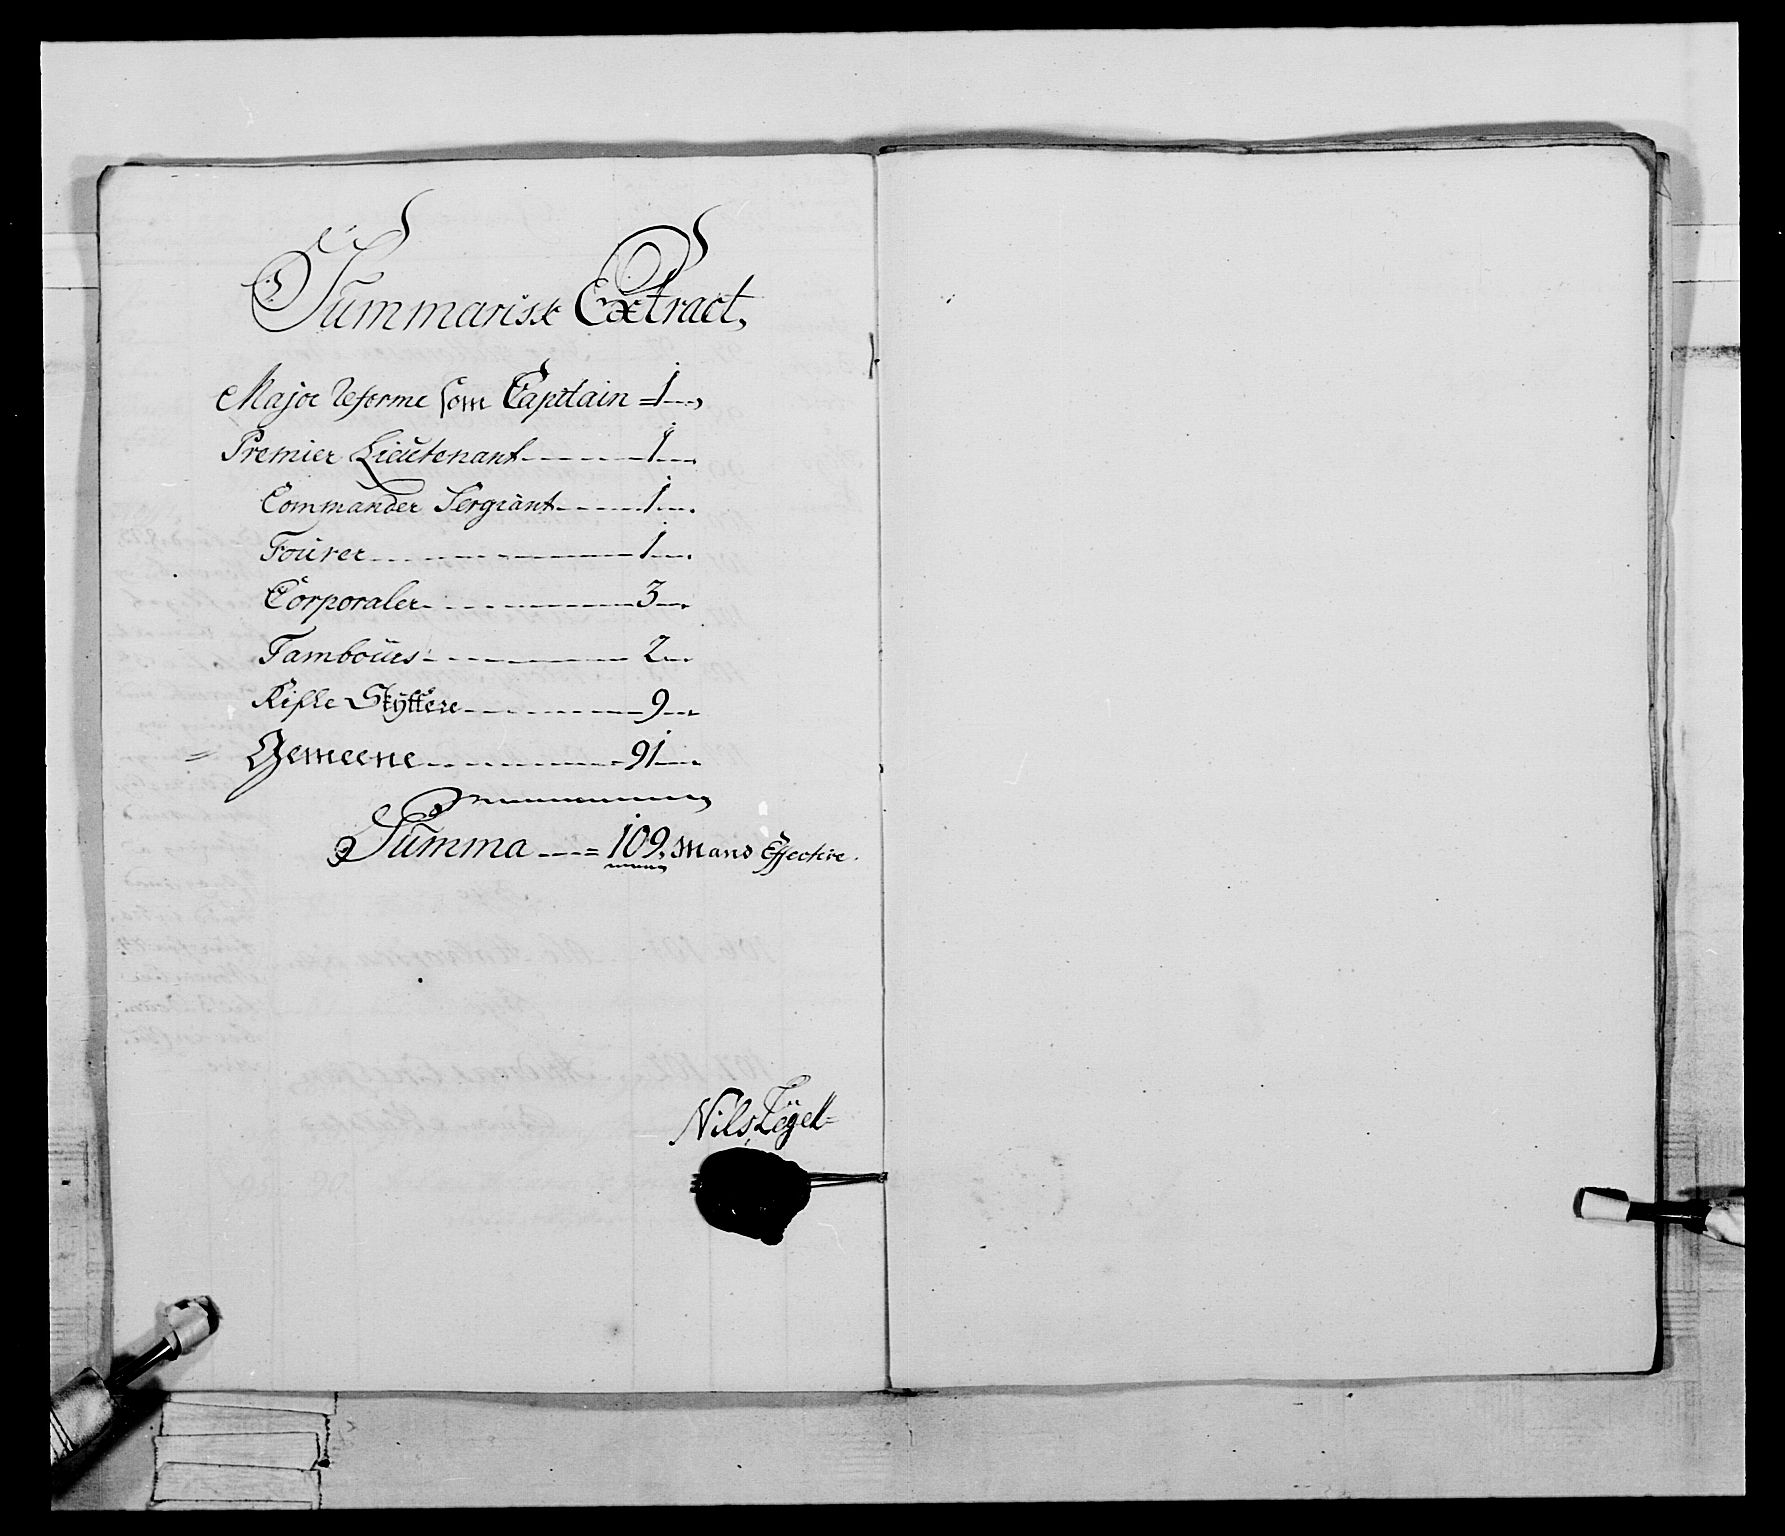 Summarisk Extract,
Major Reforme som Capitain = 1 --,
Premier Lieutenant ------- 1 --.
Commander Sergiant ------ 1 --.
Fourer ------------ 1 --.
Corporaler ---------- 3 --.
Tambours ---------- 2 --.
Rifle Skyttere --------- 9 --.
= Gemeene ---------- 91 ---.
Summa ---= 109, Mand Effective.
Nils